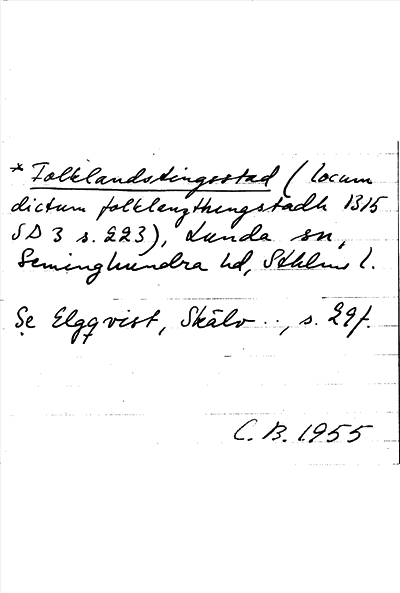 * Folklandstingsstad (locum
dictum folklanzthingstadh 1315
SD 3 s. 223), Lunda sn,
Seminghundra hd, Sthlms l.
Se Elgqvist, Skälv .., s. 29f.
C. B. 1955